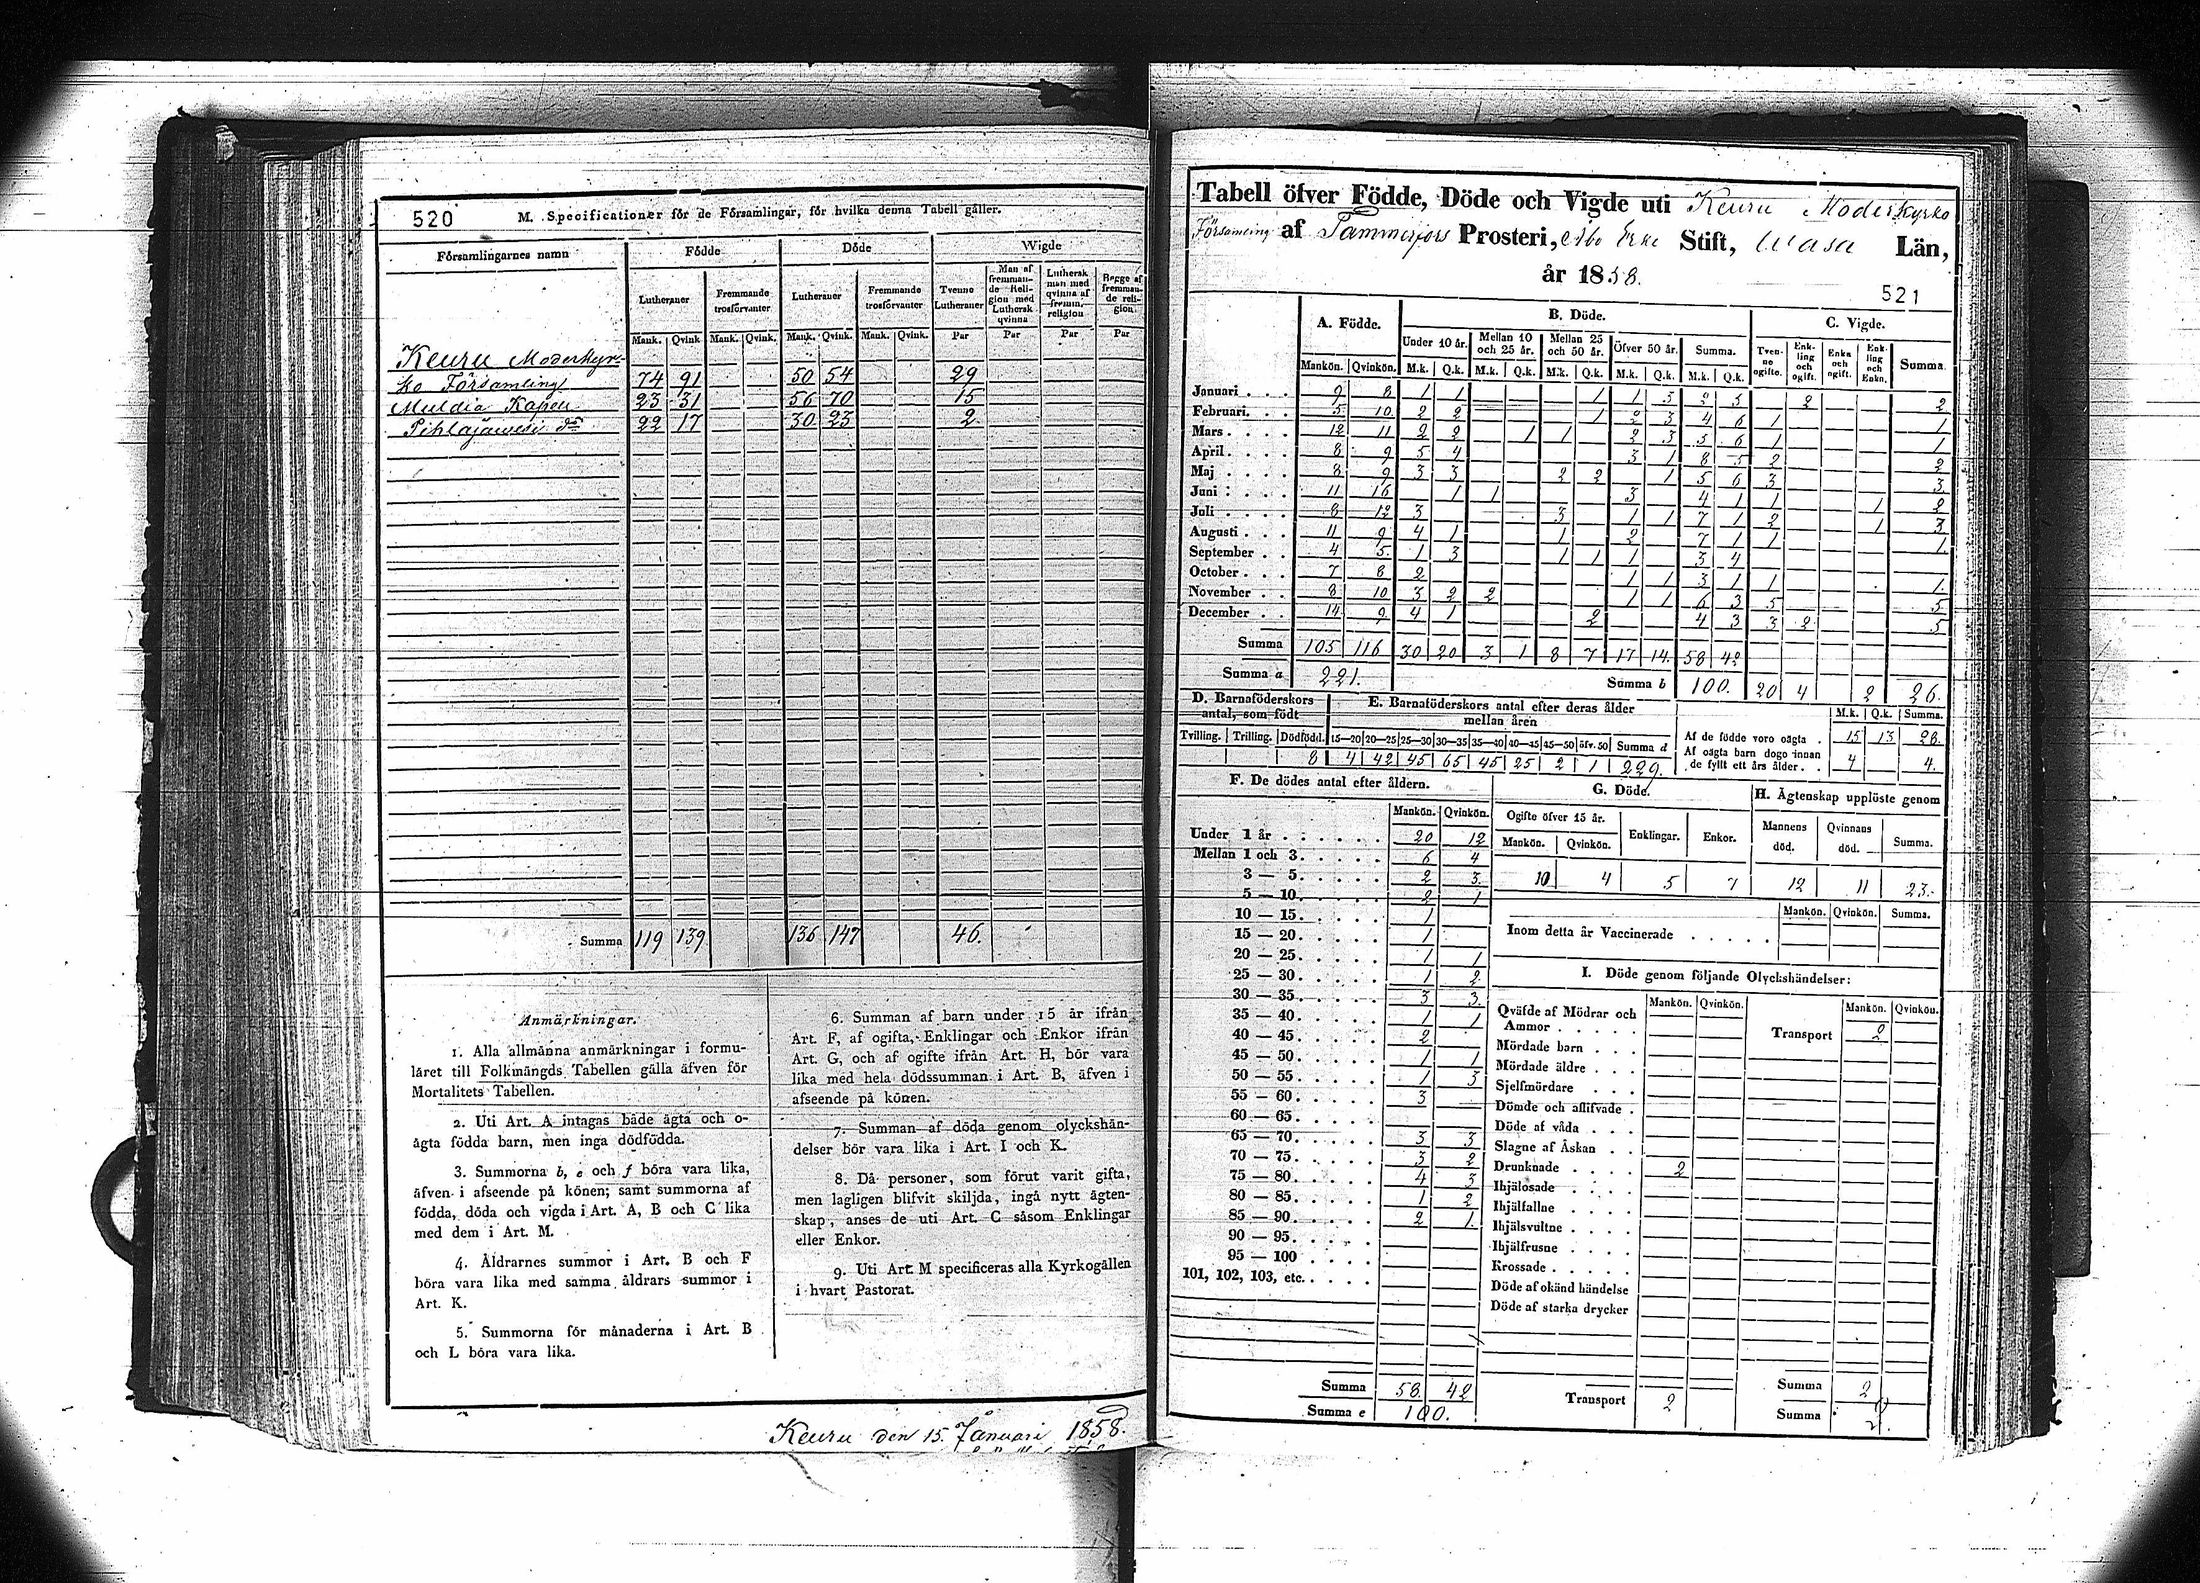 520 M. Specificationer för de Församlingar, för hvilka denna Tabell gäller.
Församlingarnes namn Födde Döde Wigde
Lutheraner Fremmande trosförvanter Lutheraner Fremmande trosförvanter Tvenne Lutheraner Man af fremmande Religion med Luthersk qvinna Luthersk man med qvinna af fremm. religion Begge af fremmande religion
Mank. Qvink Mank. Qvink. Mank. Qvink. Mank. Qvink. Par Par Par Par
Keuru Moderkyr-
ko Församling 74 91 50 54 29
Muldia Kapell 23 31 56 70 15
Pihlajawesi do 22 17 30 23 2
Summa 119 139 136 147 46.
Anmärkningar.
1. Alla allmänna anmärkningar i formu-
läret till Folkmängds Tabellen gälla äfven för
Mortalitets Tabellen.
2. Uti Art. A intagas både ägta och o-
ägta födda barn, men inga dödfödda.
3. Summorna b, e och f böra vara lika,
äfven i afseende på könen; samt summorna af
födda, döda och vigda i Art. A, B och C lika
med dem i Art. M.
4. Åldrarnes summor i Art. B och F
böra vara lika med samma åldrars summor i
Art. K.
5. Summorna för månaderna i Art. B
och L böra vara lika.
6. Summan af barn under 15 år ifrån
Art. F, af ogifta, Enklingar och Enkor ifrån
Art. G, och af ogifte ifrån Art. H, bör vara
lika med hela dödssumman i Art. B, äfven i
afseende på könen.
7. Summan af döda genom olyckshän-
delser bör vara lika i Art. I och K.
8. Då personer, som förut varit gifta,
men lagligen blifvit skiljda, ingå nytt ägten-
skap, anses de uti Art. C såsom Enklingar
eller Enkor.
9. Uti Art M specificeras alla Kyrkogällen
i hvart Pastorat.
Keuru den 15. Januari 1858.
Tabell öfver Födde, Döde och Vigde uti Keuru Moderkyrko
Församling af Tammerfors Prosteri, Åbo Erke Stift, Wasa Län,
år 1858.
521
A. Födde. B. Döde. C. Vigde.
Under 10 år. Mellan 10 och 25 år. Mellan 25 och 50 år. Öfver 50 år. Summa. Tvenne ogifte. Enkling och ogift. Enka och ogift. Enkling och Enka. Summa.
Mankön. Qvinkön. M.k. Q.k. M.k. Q.k. M.k. Q.k. M.k. Q.k. M.k. Q.k.
Januari 9 8 1 1 1 1 3 2 5 2 2
Februari. 5 10 2 2 1 2 3 4 6 1 1
Mars 12 11 2 2 1 1 2 3 5 6 1 1
April 8 9 5 4 3 1 8 5 2 2
Maj 8 9 3 3 2 2 1 5 6 3 3
Juni 11 16 1 1 3 4 1 1 1 2
Juli 8 12 3 3 1 1 7 1 2 1 3
Augusti 11 9 4 1 1 2 7 1 1 1.
September 4 5 1 3 1 1 1 3 4
October 7 8 2 1 1 3 1 1 1.
November 8 10 3 2 2 1 1 6 3 5 5
December 14 9 4 1 2 4 3 3 2 5
Summa 105 116 30 20 3 1 8 7 17 14. 58 42
Summa a 221. Summa b 100. 20 4 2 26.
D. Barnaföderskors antal, som födt E. Barnaföderskors antal efter deras ålder mellan åren M.k. Q.k. Summa.
Tvilling. Trilling. Dödfödd. 15—20 20—25 25—30 30—35 35—40 40—45 45—50 öfv. 50 Summa d
8 4 42 45 65 45 25 2 1 229.
Af de födde voro oägta 15 13 28.
Af oägta barn dogo innan
de fyllt ett års ålder 4 4.
F. De dödes antal efter åldern.
Mankön. Qvinkön.
Under 1 år 20 12
Mellan 1 och 3 6 4
3 — 5 2 3.
5 — 10 2 1
10 — 15 1
15 — 20 1
20 — 25 1 1
25 — 30 1 2
30 — 35 3 3.
35 — 40 1 1
40 — 45 2
45 — 50 1 1
50 — 55 1 3
55 — 60 3
60 — 65
65 — 70 3 3
70 — 75 3 2
75 — 80 4 3
80 — 85 1 2
85 — 90 2 1.
90 — 95
95 — 100
101, 102, 103, etc.
Summa 58. 42
Summa e 100.
G. Döde. H. Ägtenskap upplöste genom
Ogifte öfver 15 år. Enklingar. Enkor. Mannens död. Qvinnans död. Summa.
Mankön. Qvinkön.
10 4 5 7 12 11 23.
Mankön. Qvinkön. Summa.
Inom detta år Vaccinerade
I. Döde genom följande Olyckshändelser:
Mankön. Qvinkön. Mankön. Qvinkön.
Qväfde af Mödrar och
Ammor Transport 2
Mördade barn
Mördade äldre
Sjelfmördare
Dömde och aflifvade
Döde af våda
Slagne af Åskan
Drunknade 2
Ihjälosade
Ihjälfallne
Ihjälsvultne
Ihjälfrusne
Krossade
Döde af okänd händelse
Döde af starka drycker
Transport 2 Summa 2
Summa 2.